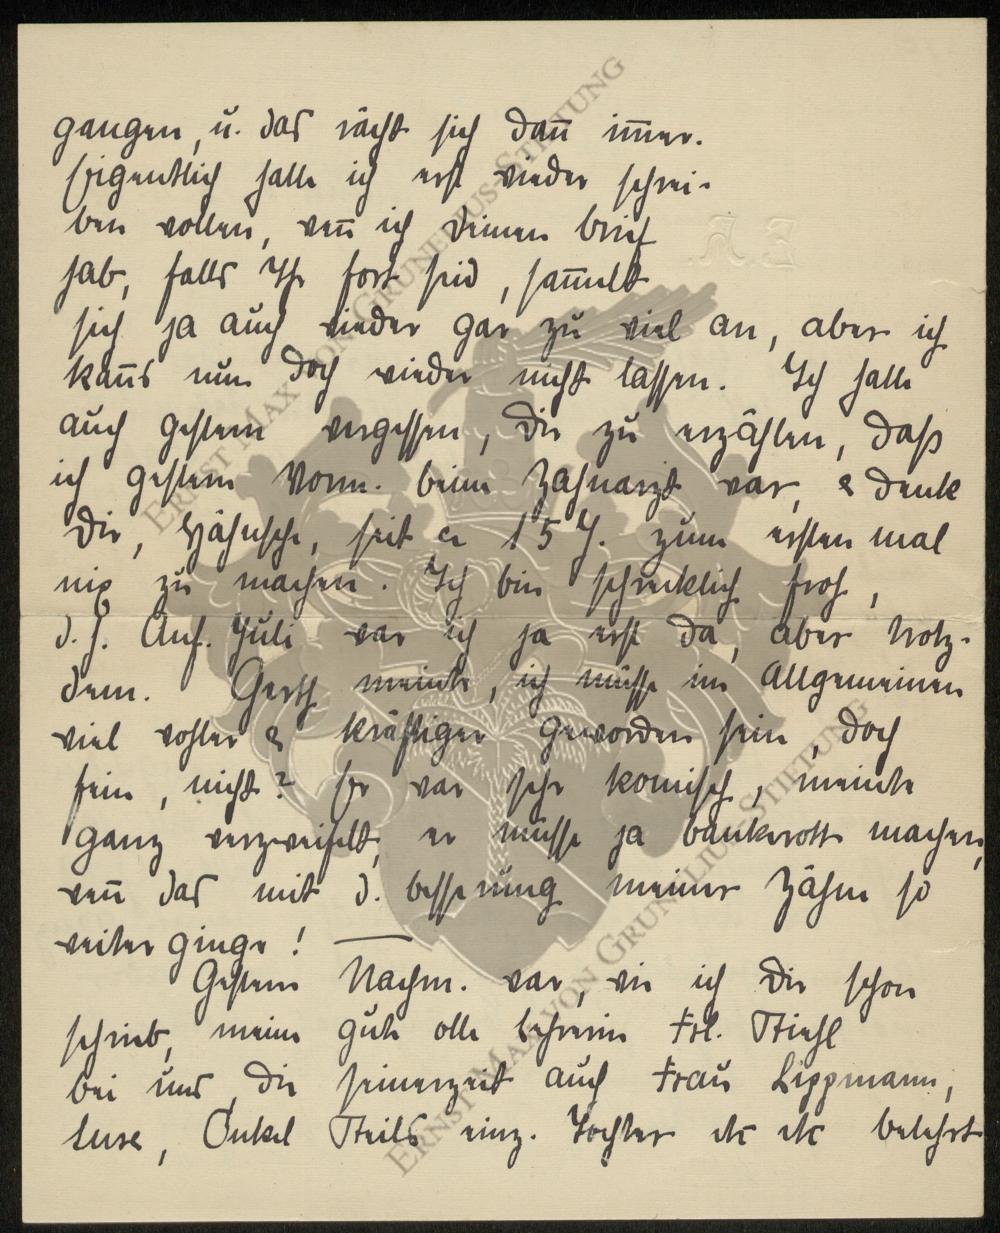 gangen, u. das rächt sich dan̄ im̄er.
Eigentlich hatte ich erst wieder schrei-
ben wollen, wen̄ ich Deinen Brief
hab, falls Ihr fort seid, sam̄elt
sich ja auch wieder gar zu viel an, aber ich
kan̄s nun doch wieder nicht lassen. Ich hatte
auch gestern vergessen, Dir zu erzählen, daß
ich gestern Vorm. beim Zahnarzt war, & denk
Dir, Hähnsche, seit ca 15 J. zum ersten mal
nix zu machen. Ich bin schrecklich froh,
d. h. Anf. Juli war ich ja erst da, aber trotz-
dem. Gerth meinte, ich müsse im Allgemeinen
viel wohler & kräftiger geworden sein, doch
fein, nicht? Er war sehr komisch, meinte
ganz verzweifelt, er müsse ja bankerott machen,
wen̄ das mit d. Besserung meiner Zähne so
weiter ginge! —
Gestern Nachm. war, wie ich Dir schon
schrieb, meine gute olle Lehrerin Frl. Thiehl
bei uns, die seinerzeit auch Frau Lippmann,
Onkel Theils einz. Tochter etc etc belehrt
E.H.
ERNST MAX VON GRUNELIUS-STIFTUNG
ERNST MAX VON GRUNELIUS-STIFTUNG